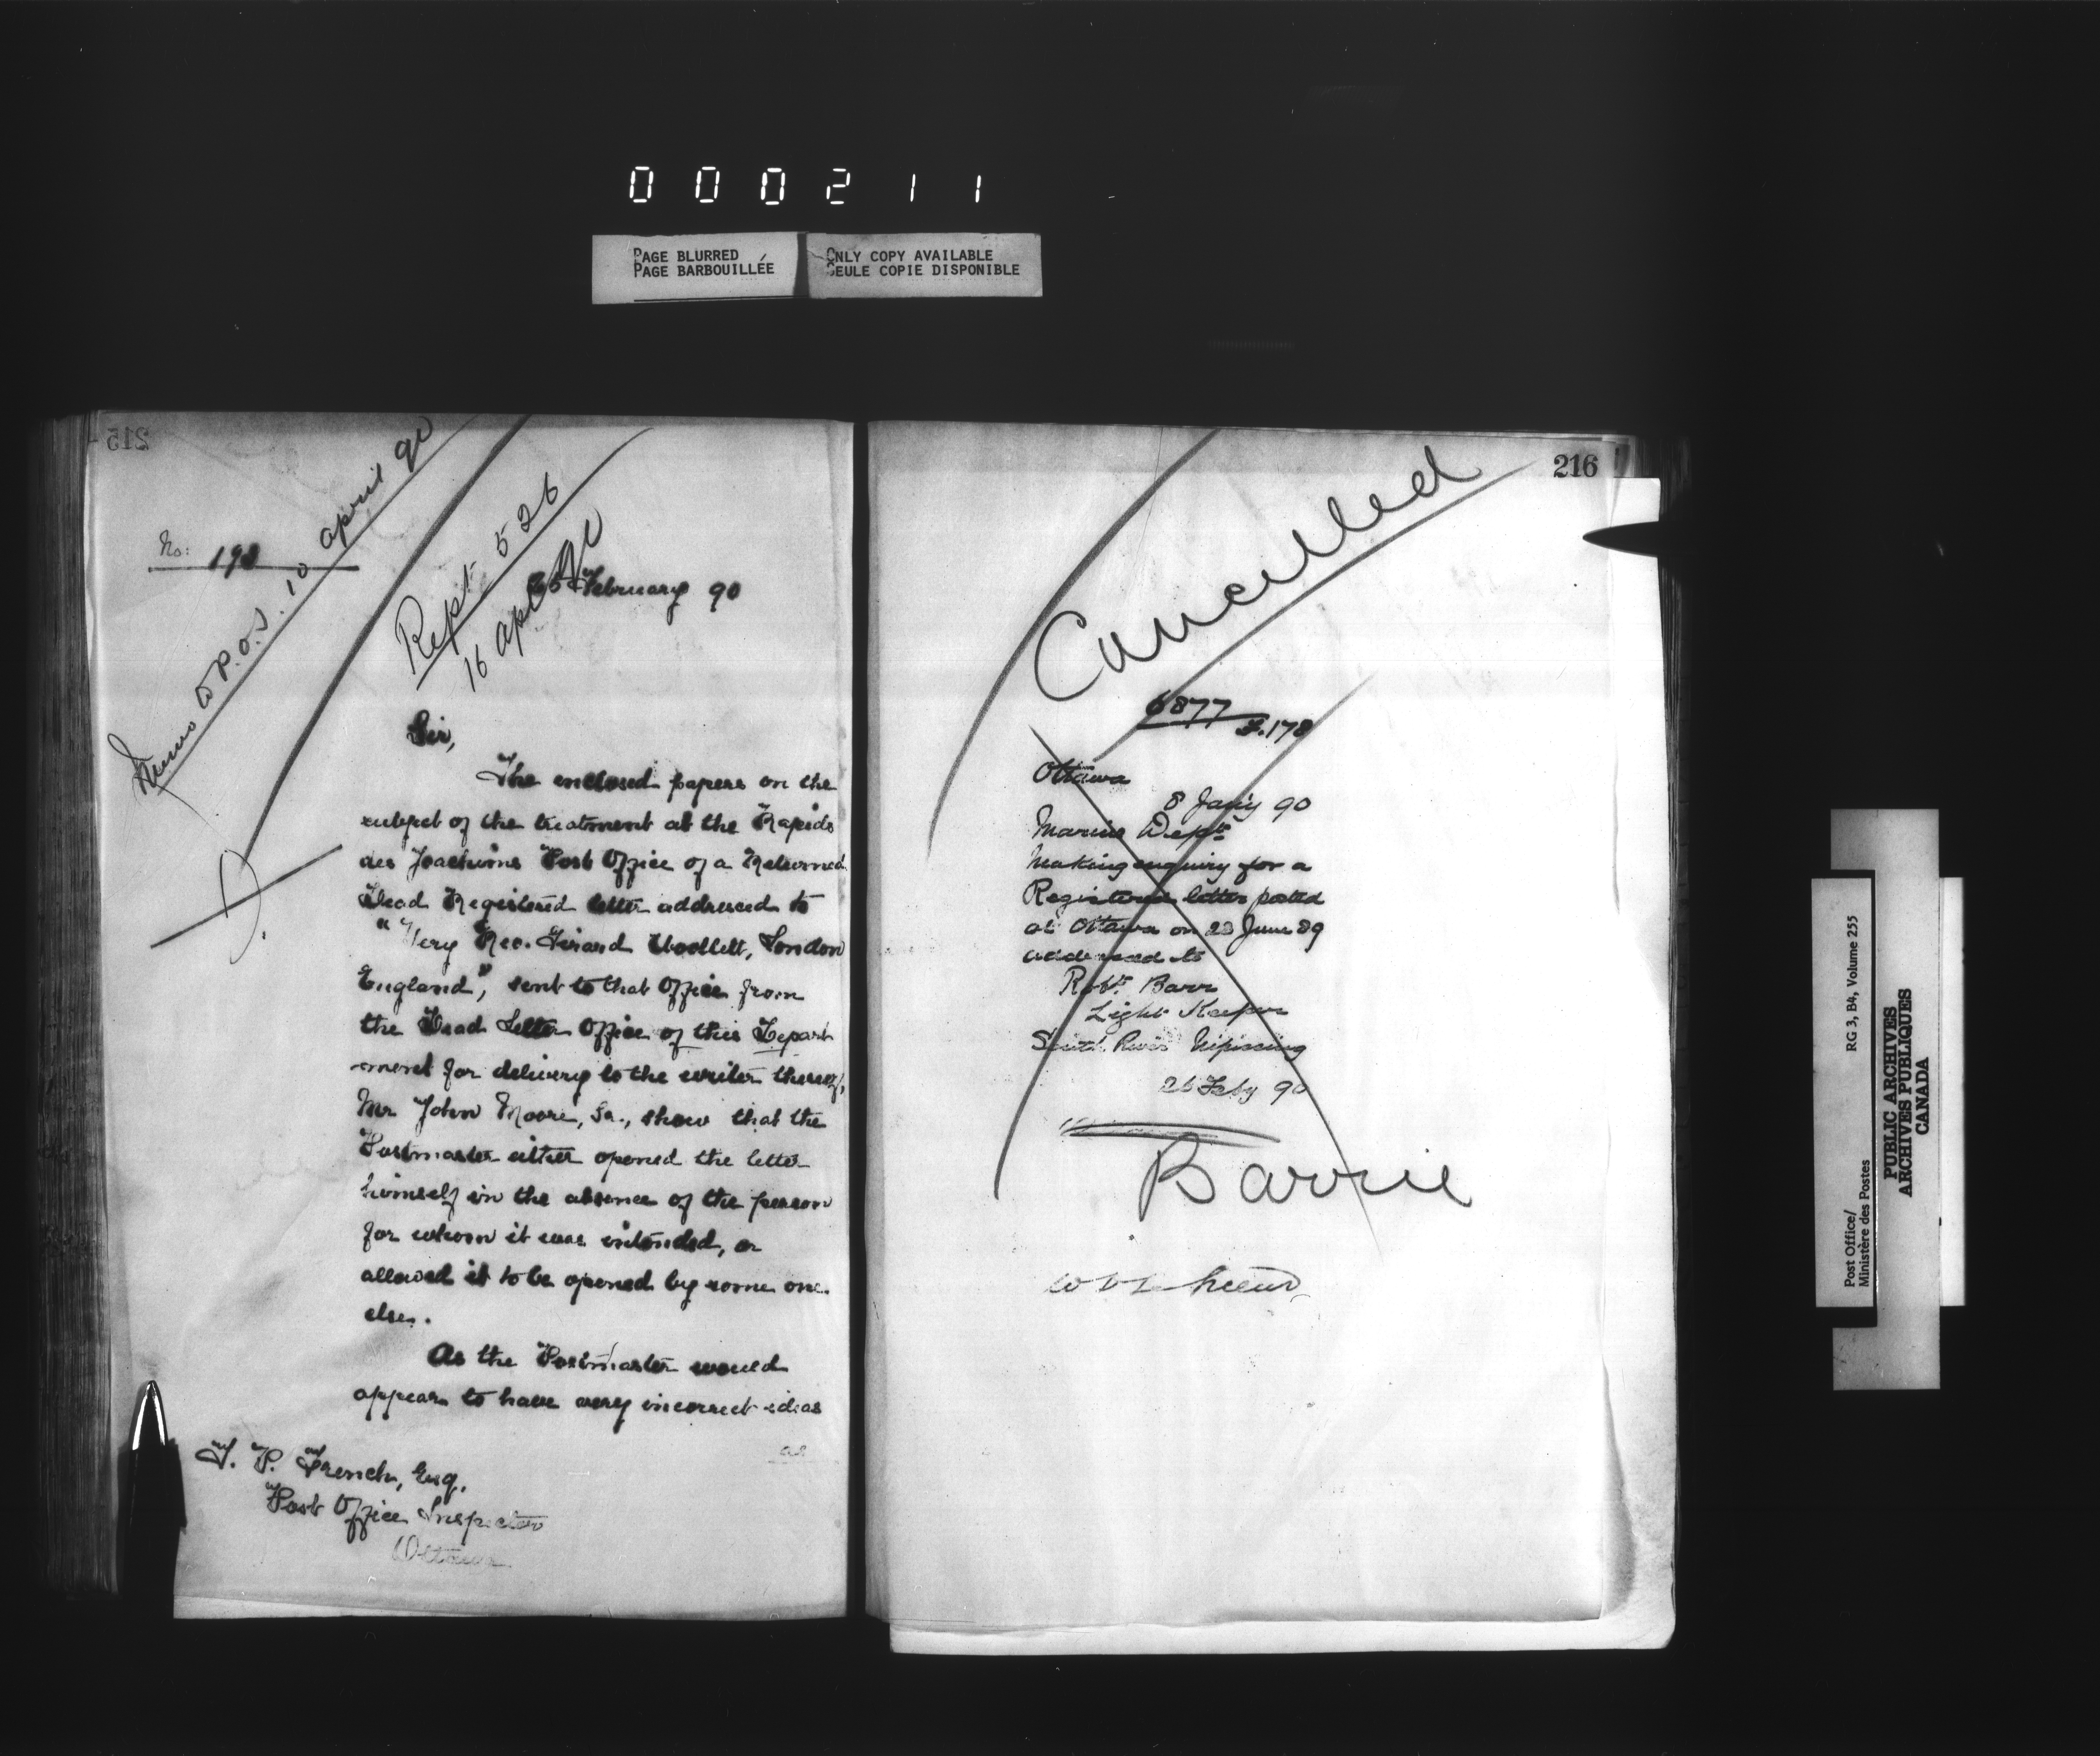 000211
PAGE BLURRED
PAGE BARBOUILLÉE
ONLY COPY AVAILABLE
SEULE COPIE DISPONIBLE
215
Memo to P.O.I. 10 april 90
No: 198
Rept 526
16 apl 90
February 90
Sir,
The enclosed papers on the
subject of the treatment at the Rapids
des Joachims Post Office of a Returned
Dead Registered letter addressed to
"Very Rev. Girard Woollett, London
England", sent to that Office from
the Dead Letter Office of this Depart
-ment for delivery to the writer thereof,
Mr John Moore, Sr., show that the
Postmaster either opened the letter
himself in the absence of the person
for whom it was intended, or
allowed it to be opened by some one
else.
As the Postmaster would
appear to have very incorrect ideas
as
T. P. French, Esq.
Post Office Inspector
Ottawa
216
Cancelled
6877
F.178
Ottawa
8 Jan'y 90
Marine Dept
Making enquiry for a
Registered letter posted
at Ottawa on 28 June 89
addressed to
Robt Barr
Light Keeper
South River Nipissing
26 Feby 90
Barrie
Post Office/
Ministère des Postes
RG 3, B4, Volume 255
PUBLIC ARCHIVES
ARCHIVES PUBLIQUES
CANADA